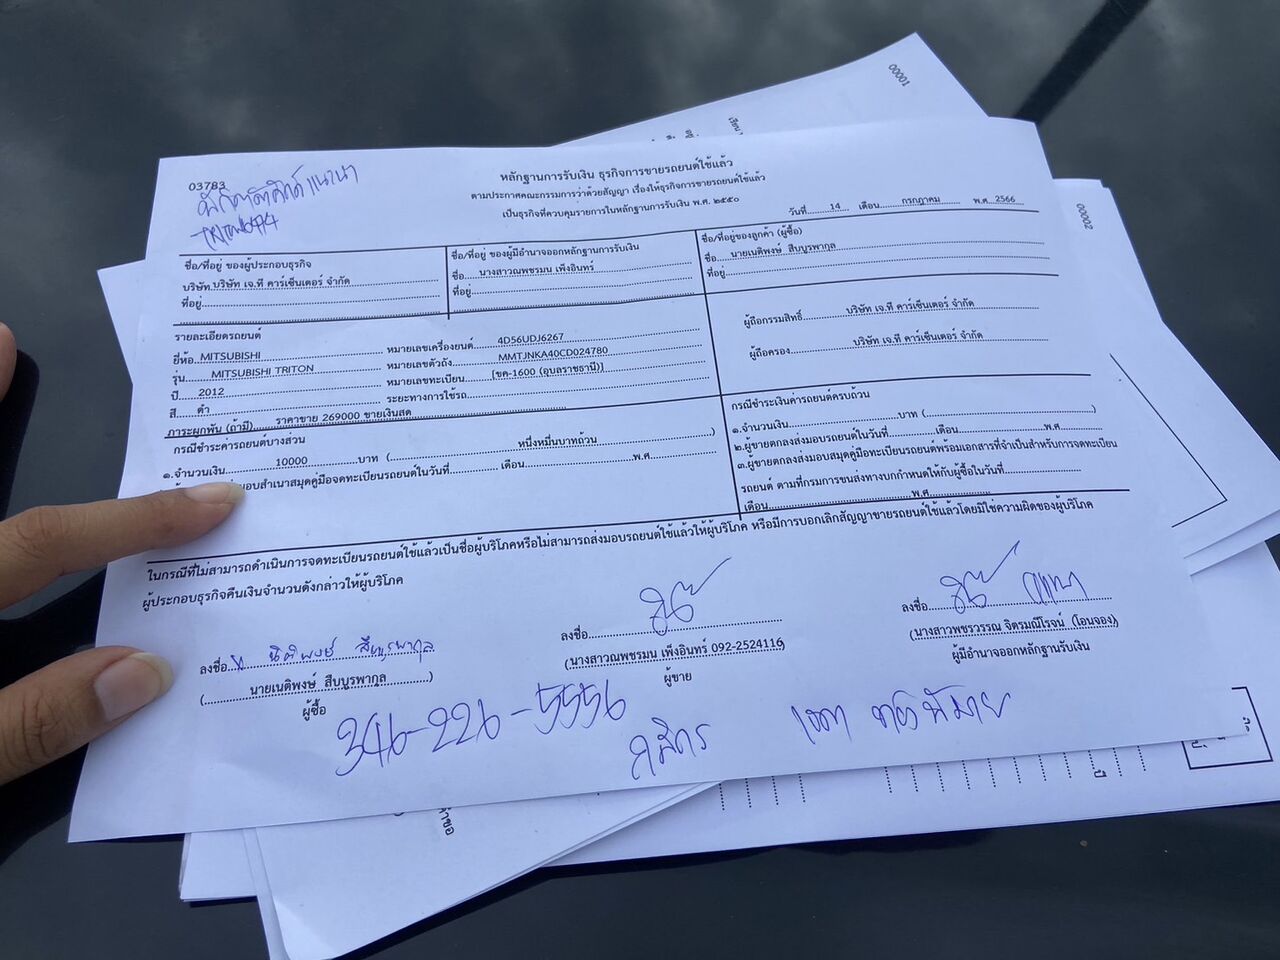 00001
เรียน
03783
หลักฐานการรับเงิน ธุรกิจการขายรถยนต์ใช้แล้ว
ตามประกาศคณะกรรมการว่าด้วยสัญญา เรื่องให้ธุรกิจการขายรถยนต์ใช้แล้ว
เป็นธุรกิจที่ควบคุมรายการในหลักฐานการรับเงิน พ.ศ. ๒๕๕๐
วันที่ 14 เดือน กรกฎาคม พ.ศ 2566
00002
ชื่อ/ที่อยู่ ของผู้ประกอบธุรกิจ
บริษัท บริษัท เจ.ที คาร์เซ็นเตอร์ จำกัด
ที่อยู่
ชื่อ/ที่อยู่ ของผู้มีอำนาจออกหลักฐานการรับเงิน
ชื่อ นางสาวณพชรมน เพ็งอินทร์
ที่อยู่
ชื่อ/ที่อยู่ของลูกค้า (ผู้ซื้อ)
ชื่อ นายเนติพงษ์ สืบบูรพากุล
ที่อยู่
รายละเอียดรถยนต์
ยี่ห้อ MITSUBISHI หมายเลขเครื่องยนต์ 4D56UDJ6267
รุ่น MITSUBISHI TRITON หมายเลขตัวถัง MMTJNKA40CD024780
ปี 2012 หมายเลขทะเบียน [ขค-1600 (อุบลราชธานี)]
สี ดำ ระยะทางการใช้รถ
ภาระผูกพัน (ถ้ามี) ราคาขาย 269000 ขายเงินสด
ผู้ถือกรรมสิทธิ์ บริษัท เจ.ที คาร์เซ็นเตอร์ จำกัด
ผู้ถือครอง บริษัท เจ.ที คาร์เซ็นเตอร์ จำกัด
กรณีชำระค่ารถยนต์บางส่วน
๑.จำนวนเงิน 10000 บาท ( หนึ่งหมื่นบาทถ้วน )
มอบสำเนาสมุดคู่มือจดทะเบียนรถยนต์ในวันที่ เดือน พ.ศ
กรณีชำระเงินค่ารถยนต์ครบถ้วน
๑.จำนวนเงิน บาท ( )
๒.ผู้ขายตกลงส่งมอบรถยนต์ในวันที่ เดือน พ.ศ
๓.ผู้ขายตกลงส่งมอบสมุดคู่มือทะเบียนรถยนต์พร้อมเอกสารที่จำเป็นสำหรับการจดทะเบียน
รถยนต์ ตามที่กรมการขนส่งทางบกกำหนดให้กับผู้ซื้อในวันที่
เดือน พ.ศ
ในกรณีที่ไม่สามารถดำเนินการจดทะเบียนรถยนต์ใช้แล้วเป็นชื่อผู้บริโภคหรือไม่สามารถส่งมอบรถยนต์ใช้แล้วให้ผู้บริโภค หรือมีการบอกเลิกสัญญาขายรถยนต์ใช้แล้วโดยมิใช่ความผิดของผู้บริโภค
ผู้ประกอบธุรกิจคืนเงินจำนวนดังกล่าวให้ผู้บริโภค
ลงชื่อ
(นายเนติพงษ์ สืบบูรพากุล)
ผู้ซื้อ
ลงชื่อ
(นางสาวณพชรมน เพ็งอินทร์ 092-2524116)
ผู้ขาย
ลงชื่อ
(นางสาวพชรวรรณ จิตรมณีโรจน์ (โอนจอง))
ผู้มีอำนาจออกหลักฐานรับเงิน
346-226-5556
กสิกร